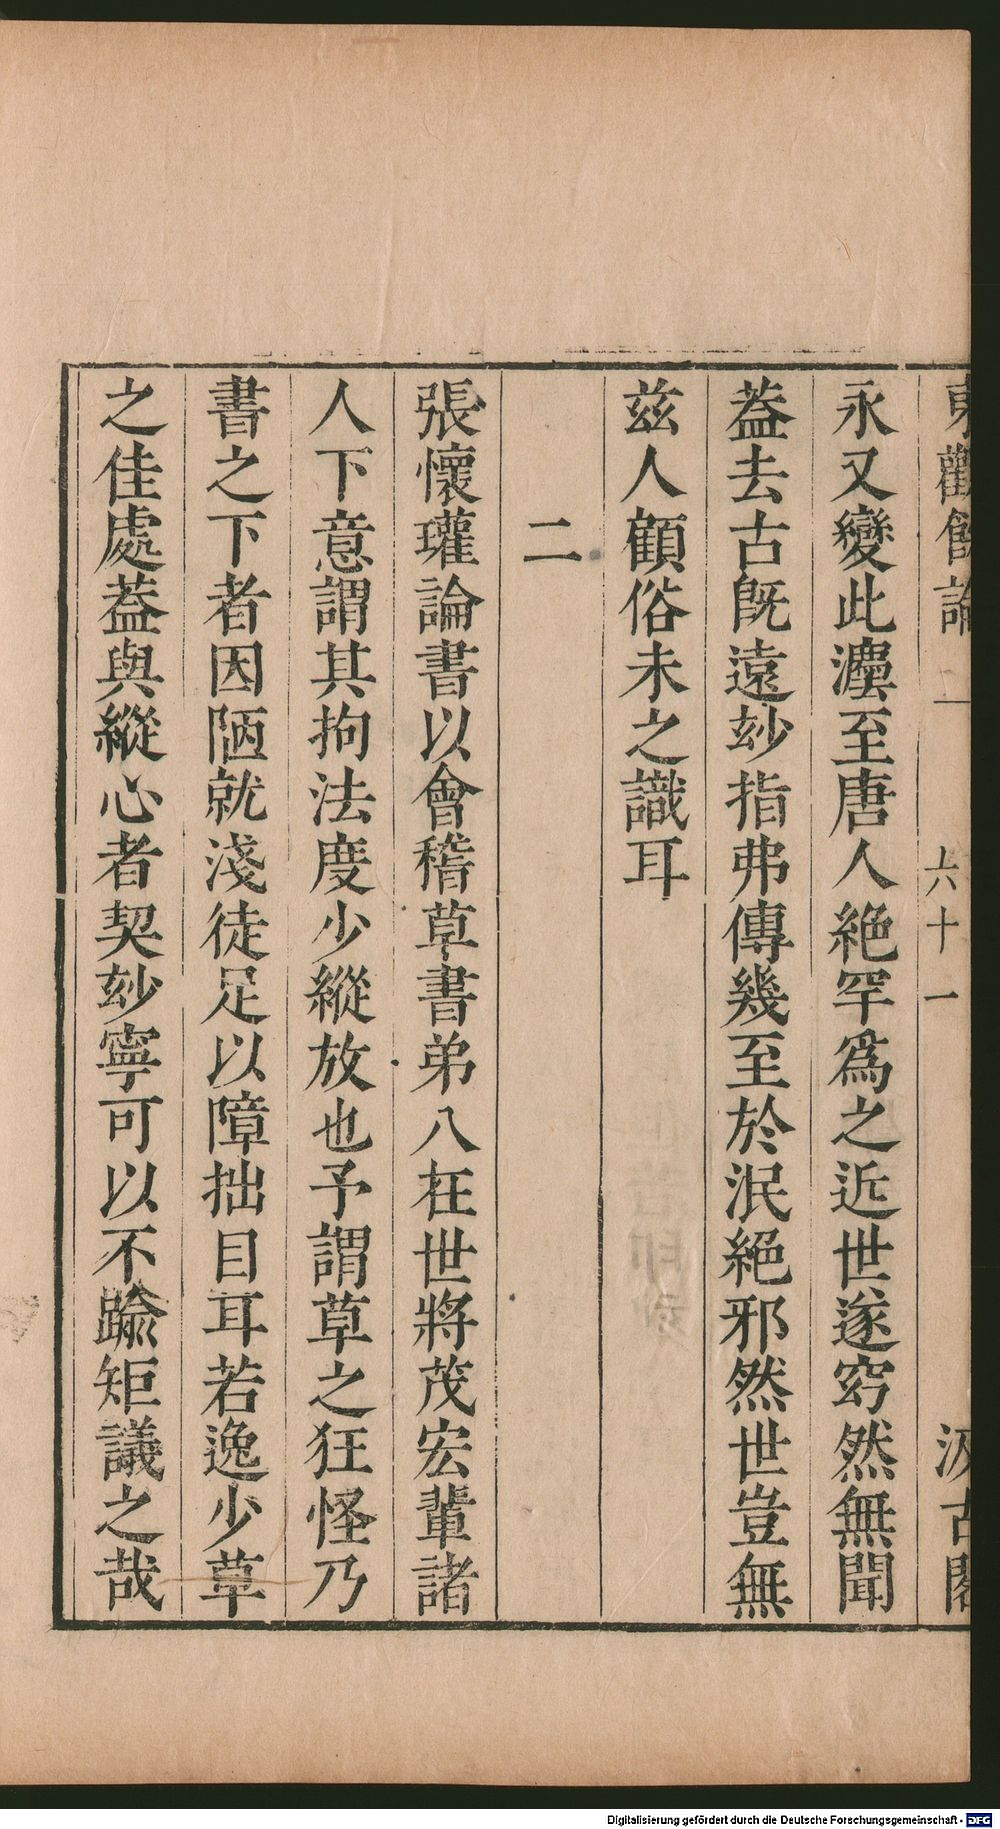 東觀餘論 二 六十一 汲古閣
永又變此灋至唐人絶罕爲之近世遂窈然無聞
葢去古既遠玅指弗傳幾至於泯絶邪然世豈無
茲人顧俗未之識耳
二
張懷瓘論書以會稽草書弟八在世將茂宏輩諸
人下意謂其拘法度少縱放也予謂草之狂怪乃
書之下者因陋就淺徒足以障拙目耳若逸少草
之佳處葢與縱心者契玅寧可以不踰矩議之哉
Digitalisierung gefördert durch die Deutsche Forschungsgemeinschaft - DFG